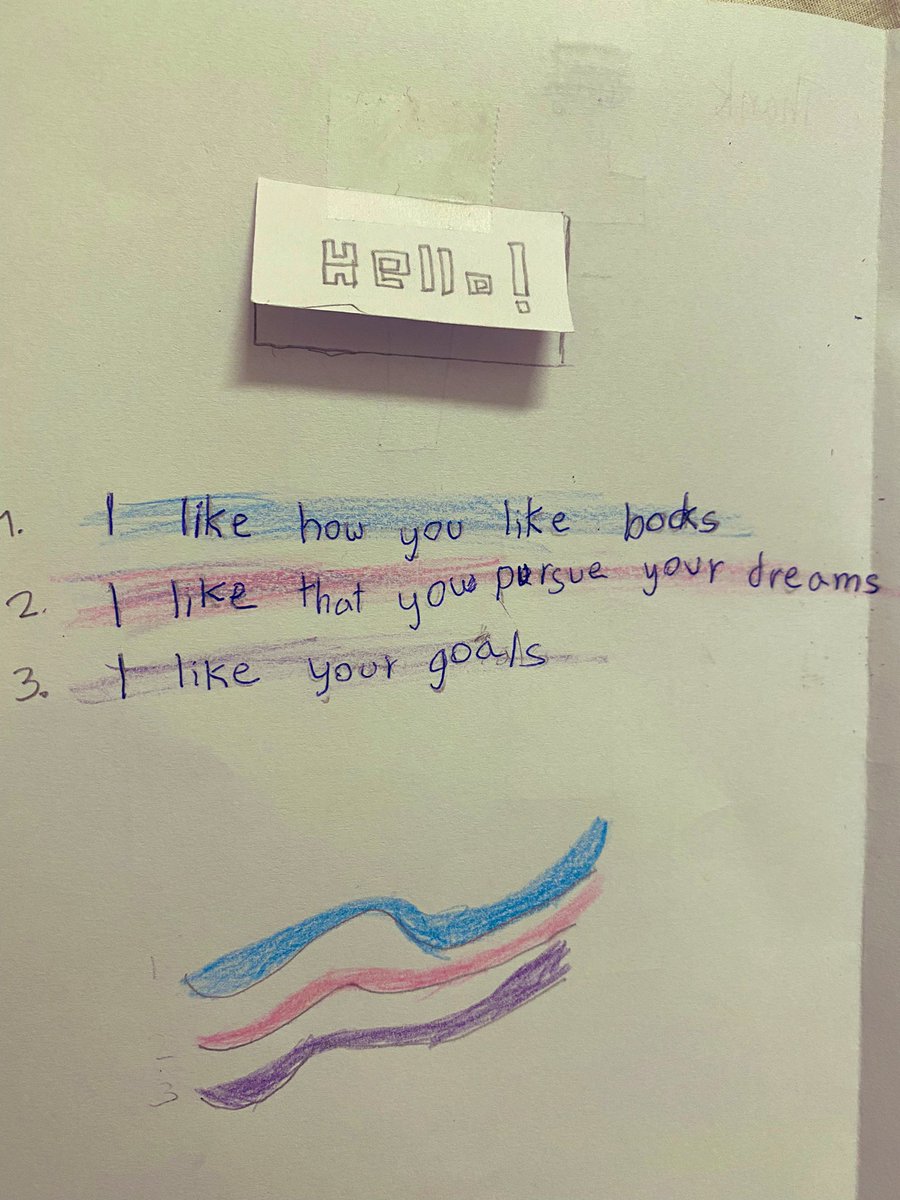 Thank
Hello!
1. I like how you like books
2. I like that you pursue your dreams
3. I like your goals
1
3